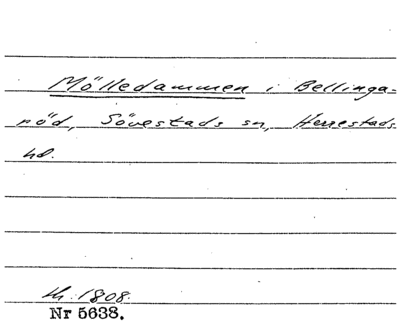 Mölledammen i Bellinga-
röd, Sövestads sn, Herrestads
hd.
th. 1808.
Nr 5638.